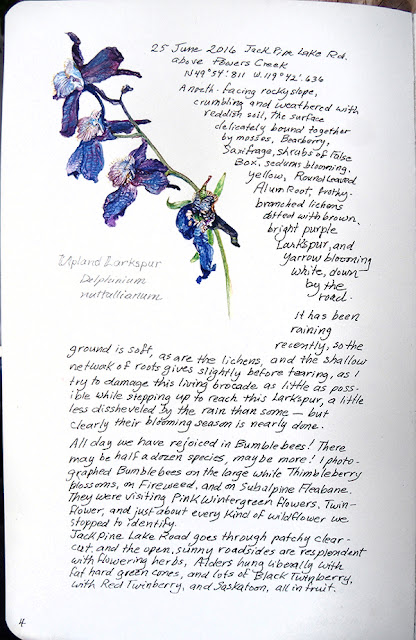 25 June 2016 Jack Pine Lake Rd.
above Powers Creek
N49°54'.811 W.119°42'.636
A north-facing rocky slope,
crumbling and weathered with
reddish soil, the surface
delicately bound together
by mosses, Bearberry,
Saxifrage, shrubs of False
Box, sedums blooming
yellow, Round Leaved
Alum Root, frothy-
branched lichens
dotted with brown,
bright purple
Larkspur, and
Yarrow blooming
white, down
by the
road.
It has been
raining
recently, so the
Upland Larkspur
Delphinium
nuttallianum
ground is soft, as are the lichens, and the shallow
network of roots gives slightly before tearing, as I
try to damage this living brocade as little as poss-
ible while stepping up to reach this Larkspur, a little
less dissheveled by the rain than some — but
clearly their blooming season is nearly done.
All day we have rejoiced in Bumblebees! There
may be half a dozen species, maybe more! I photo-
graphed Bumblebees on the large white Thimbleberry
blossoms, on Fireweed, and on Subalpine Fleabane.
They were visiting Pink Wintergreen flowers, Twin-
flower, and just about every kind of wildflower we
stopped to identify.
Jack Pine Lake Road goes through patchy clear-
cut, and the open, sunny roadsides are resplendent
with flowering herbs, Alders hung liberally with
fat hard green cones, and lots of Black Twinberry,
with Red Twinberry, and Saskatoon, all in fruit.
4